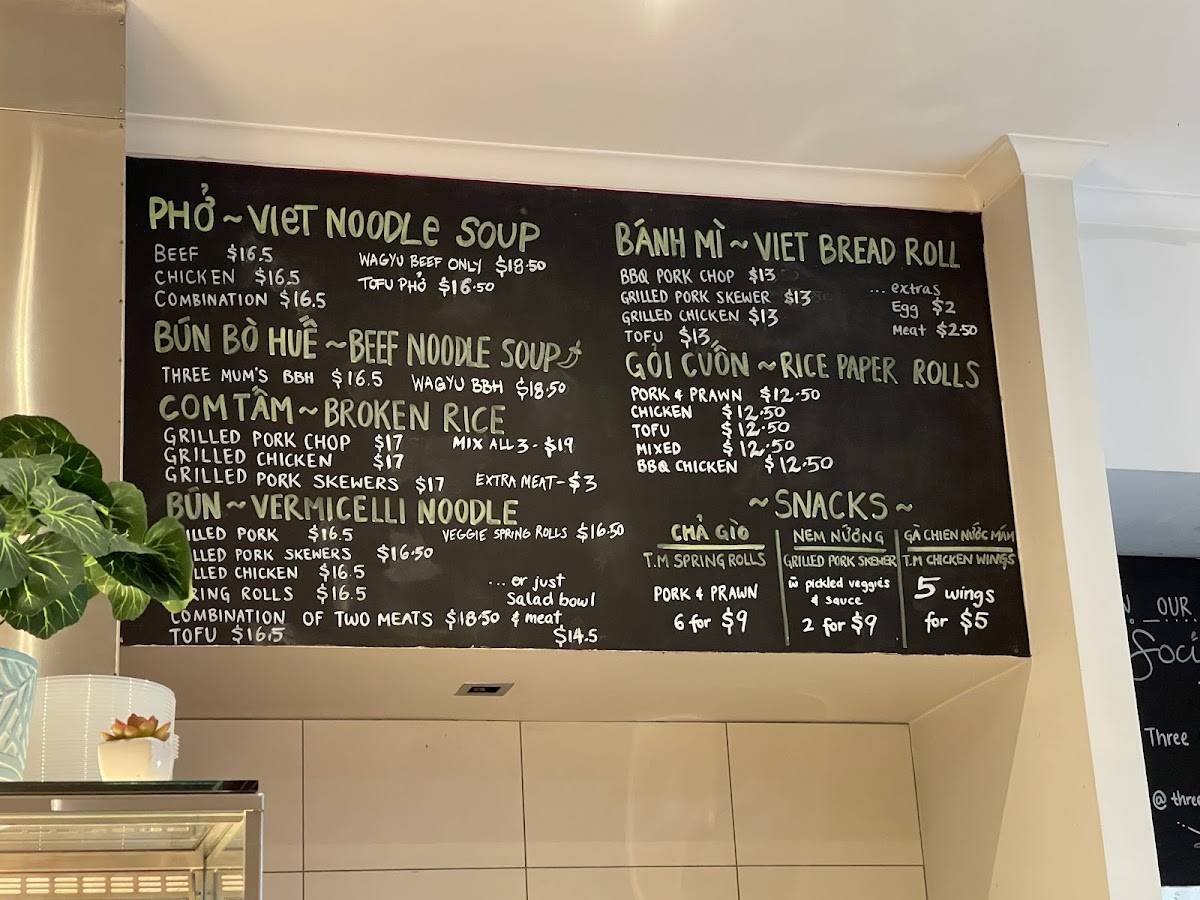 PHỞ ~ VIET NOODLE SOUP
BEEF $16.5
CHICKEN $16.5
COMBINATION $16.5
WAGYU BEEF ONLY $18.50
TOFU PHỞ $16.50
BÚN BÒ HUẾ ~ BEEF NOODLE SOUP
THREE MUM'S BBH $16.5
WAGYU BBH $18.50
COM TẤM ~ BROKEN RICE
GRILLED PORK CHOP $17
GRILLED CHICKEN $17
GRILLED PORK SKEWERS $17
MIX ALL 3 - $19
EXTRA MEAT - $3
BÚN ~ VERMICELLI NOODLE
LLED PORK $16.5
LLED PORK SKEWERS $16.50
LLED CHICKEN $16.5
RING ROLLS $16.5
COMBINATION OF TWO MEATS $18.50
TOFU $16.5
VEGGIE SPRING ROLLS $16.50
... or just
Salad bowl
& meat
$14.5
BÁNH MÌ ~ VIET BREAD ROLL
BBQ PORK CHOP $13
GRILLED PORK SKEWER $13
GRILLED CHICKEN $13
TOFU $13
... extras
Egg $2
Meat $2.50
GỎI CUỐN ~ RICE PAPER ROLLS
PORK & PRAWN $12.50
CHICKEN $12.50
TOFU $12.50
MIXED $12.50
BBQ CHICKEN $12.50
~ SNACKS ~
CHẢ GIÒ
T.M SPRING ROLLS
PORK & PRAWN
6 for $9
NEM NƯỚNG
GRILLED PORK SKEWER
w̄ pickled veggies
& sauce
2 for $9
GÀ CHIEN NƯỚC MẮM
T.M CHICKEN WINGS
5 wings
for $5
OUR
Soci
Three
@ three